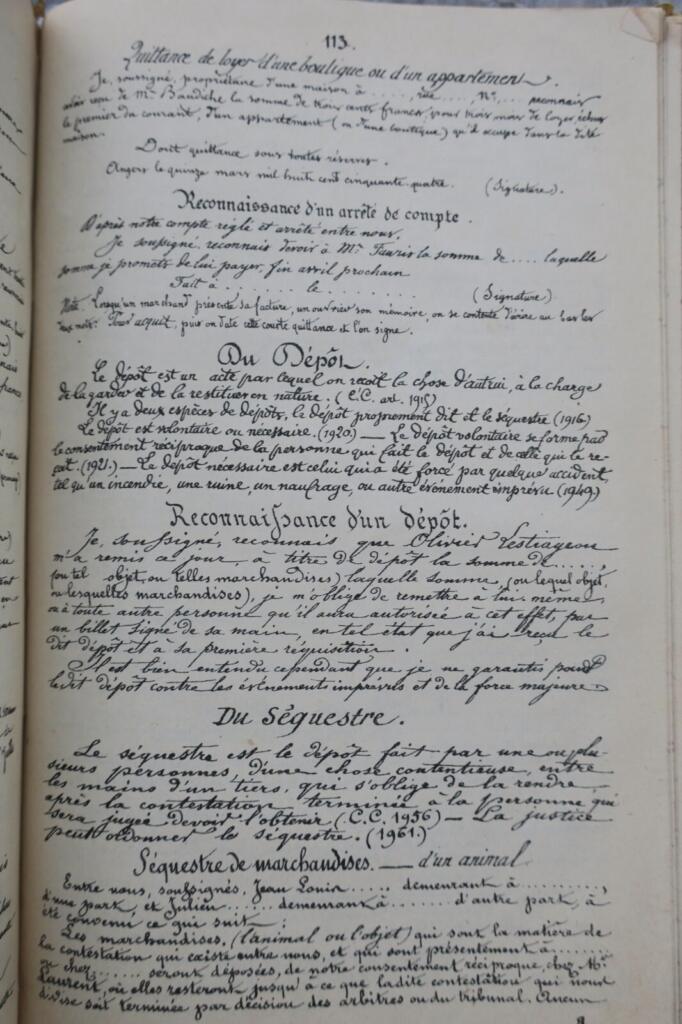 113.
Quittance de loyer d'une boutique ou d'un appartement.
Je, soussigné, propriétaire d'une maison à ...., rue ...., N°...., reconnais
avoir reçu de Mr Baudiche la somme de trois cents francs, pour trois mois de loyer, échus
le premier du courant, d'un appartement (ou d'une boutique) qu'il occupe dans la dite
maison.
Dont quittance sous toutes réserves.
Angers le quinze mars mil huit cent cinquante quatre. (Signature).
Reconnaissance d'un arrêté de compte.
D'après notre compte réglé et arrêté entre nous,
Je soussigné reconnais devoir à Mr Fauris la somme de .... laquelle
somme je promets de lui payer, fin avril prochain
Fait à ........ le ........ (Signature)
Note. Lorsqu'un marchand présente sa facture, un ouvrier son mémoire, on se contente d'écrire au bas les
mots: Pour acquit, puis on date cette courte quittance et l'on signe.
Du Dépôt.
Le dépôt est un acte par lequel on reçoit la chose d'autrui, à la charge
de la garder et de la restituer en nature. (C.C. art. 1915)
Il y a deux espèces de dépôts, le dépôt proprement dit et le séquestre (1916)
Le dépôt est volontaire ou nécessaire. (1920) — Le dépôt volontaire se forme par
le consentement réciproque de la personne qui fait le dépôt et de celle qui le re-
çoit. (1921.) — Le dépôt nécessaire est celui qui a été forcé par quelque accident,
tel qu'un incendie, une ruine, un naufrage, ou autre événement imprévu (1949)
Reconnaissance d'un dépôt.
Je, soussigné, reconnais que Olivier Lestiageon
m'a remis ce jour, à titre de dépôt la somme de .....,
(ou tel objet, ou telles marchandises) laquelle somme, (ou lequel objet,
ou lesquelles marchandises), je m'oblige de remettre à lui-même,
ou à toute autre personne qu'il aura autorisée à cet effet, par
un billet signé de sa main, en tel état que j'ai reçu le
dit dépôt et à sa première réquisition.
Il est bien entendu cependant que je ne garantis point
le dit dépôt contre les événements imprévus et de la force majeure
Du Séquestre.
Le séquestre est le dépôt fait par une ou plu-
sieurs personnes, d'une chose contentieuse, entre
les mains d'un tiers, qui s'oblige de la rendre,
après la contestation terminée à la personne qui
sera jugée devoir l'obtenir (C.C. 1956) — La justice
peut ordonner le séquestre. (1961.)
Séquestre de marchandises. — d'un animal
Entre nous, soussignés, Jean Louis ..... demeurant à .........,
d'une part, et Julien ...... demeurant à ...... d'autre part, à
été convenu ce qui suit:
Les marchandises, (l'animal ou l'objet) qui sont la matière de
la contestation qui existe entre nous, et qui sont présentement à ........
ou chez ........ seront déposées, de notre consentement réciproque, chez Mr
Laurent, où elles resteront jusqu'à ce que la dite contestation qui nous
divise soit terminée par décision des arbitres ou du tribunal. Aucun
8